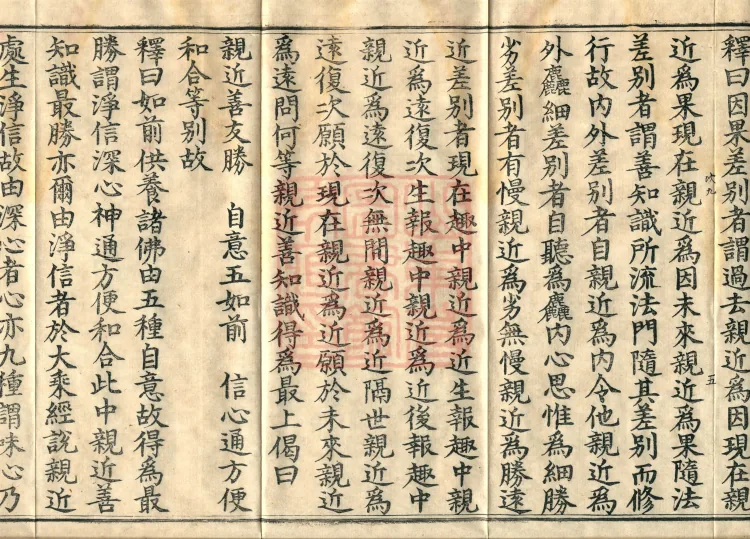 釋曰因果差別者謂過去親近為因現在親
近為果現在親近為因未來親近為果隨法
差別者謂善知識所流法門隨其差別而修
行故內外差別者自親近為內令他親近為
外麤細差別者自聽為麤內心思惟為細勝
劣差別者有慢親近為劣無慢親近為勝遠
近差別者現在趣中親近為近生報趣中親
近為遠復次生報趣中親近為近後報趣中
親近為遠復次無間親近為近隔世親近為
遠復次願於現在親近為近願於未來親近
為遠問何等親近善知識得為最上偈曰
親近善友勝　自意五如前　信心通方便
和合等別故
釋曰如前供養諸佛由五種自意故得為最
勝謂淨信深心神通方便和合此中親近善
知識最勝亦爾由淨信者於大乘經說親近
處生淨信故由深心者心亦九種謂味心乃
五